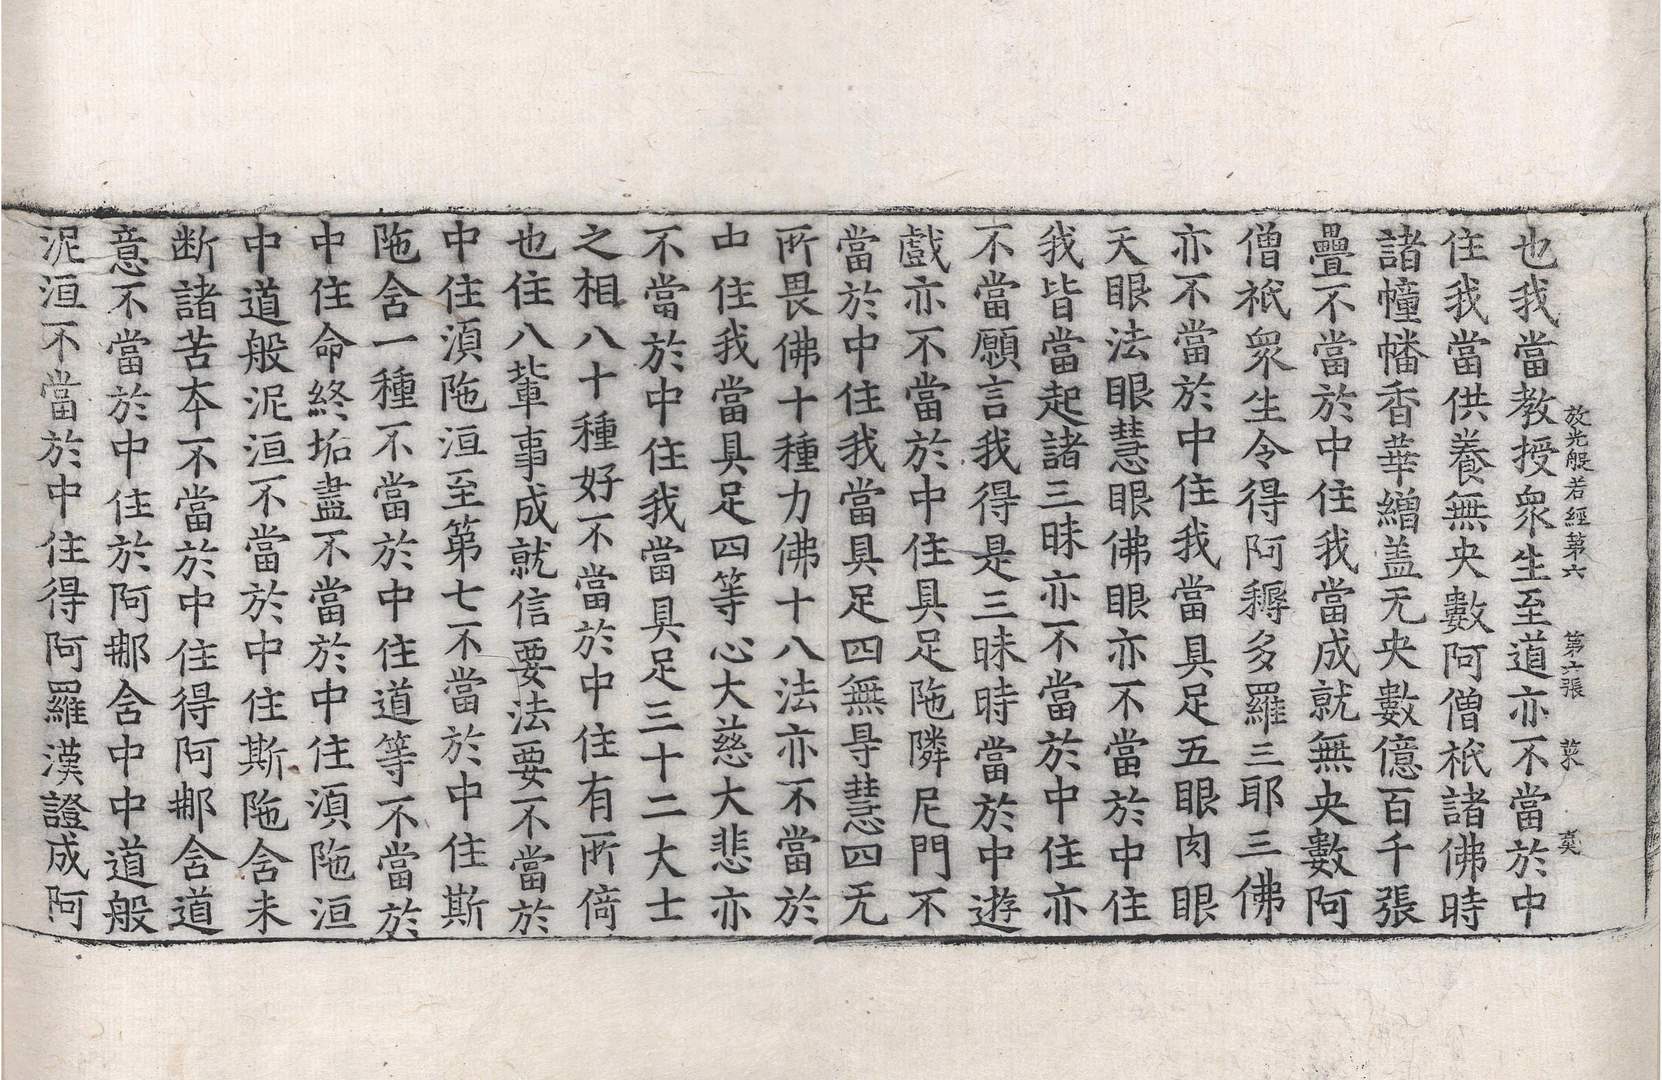 放光般若經第六 第六張 菜
也我當教授衆生至道亦不當於中
住我當供養無央數阿僧祇諸佛時
諸幢幡香華繒盖无央數億百千張
疊不當於中住我當成就無央數阿
僧祇衆生令得阿耨多羅三耶三佛
亦不當於中住我當具足五眼肉眼
天眼法眼慧眼佛眼亦不當於中住
我皆當起諸三昧亦不當於中住亦
不當願言我得是三昧時當於中遊
戲亦不當於中住具足陁隣尼門不
當於中住我當具足四無㝵慧四无
所畏佛十種力佛十八法亦不當於
中住我當具足四等心大慈大悲亦
不當於中住我當具足三十二大士
之相八十種好不當於中住有所倚
也住八軰事成就信要法要不當於
中住湏陁洹至第七不當於中住斯
陁含一種不當於中住道等不當於
中住命終垢盡不當於中住湏陁洹
中道般泥洹不當於中住斯陁含未
断諸苦本不當於中住得阿郍含道
意不當於中住於阿郍含中中道般
泥洹不當於中住得阿羅漢證成阿